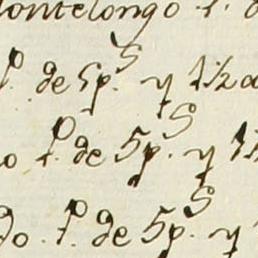 Montelongo f. d
f.º de 5p.s y 1½ a
o f.º de 5p.s y 1½
do. f.º de 5p.s y 1